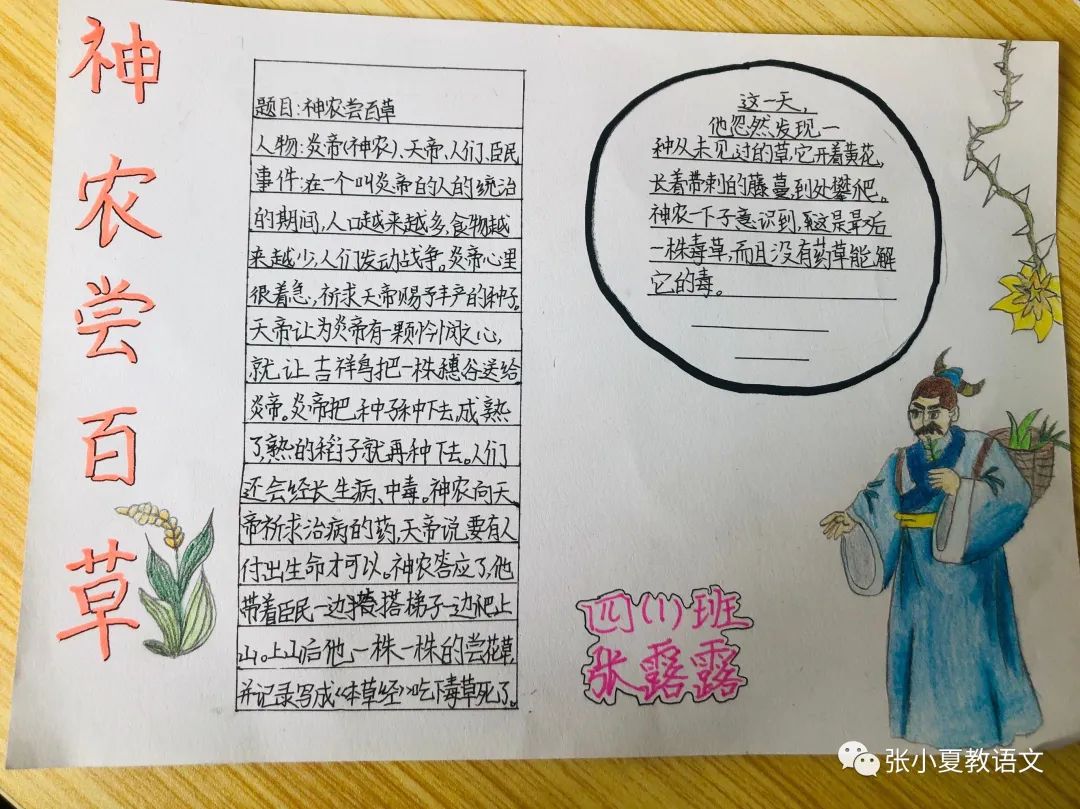 神农尝百草
题目:神农尝百草
人物:炎帝(神农)、天帝、人们、臣民
事件:在一个叫炎帝的人的统治
的期间,人口越来越多,食物越
来越少,人们发动战争。炎帝心里
很着急,祈求天帝赐予丰产的种子。
天帝认为炎帝有一颗怜悯之心,
就让吉祥鸟把一株穗谷送给
炎帝。炎帝把种子种下去,成熟
了,熟的稻子就再种下去。人们
还会经长生病、中毒。神农向天
帝祈求治病的药,天帝说要有人
付出生命才可以。神农答应了,他
带着臣民一边搭梯子一边爬上
山。上山后他一株一株的尝花草,
并记录写成《本草经》吃下毒草死了。
这一天,
他忽然发现一
种从未见过的草,它开着黄花,
长着带刺的藤蔓,到处攀爬。
神农一下子意识到,这是最后
一株毒草,而且没有药草能解
它的毒。
四(1)班
张露露
张小夏教语文